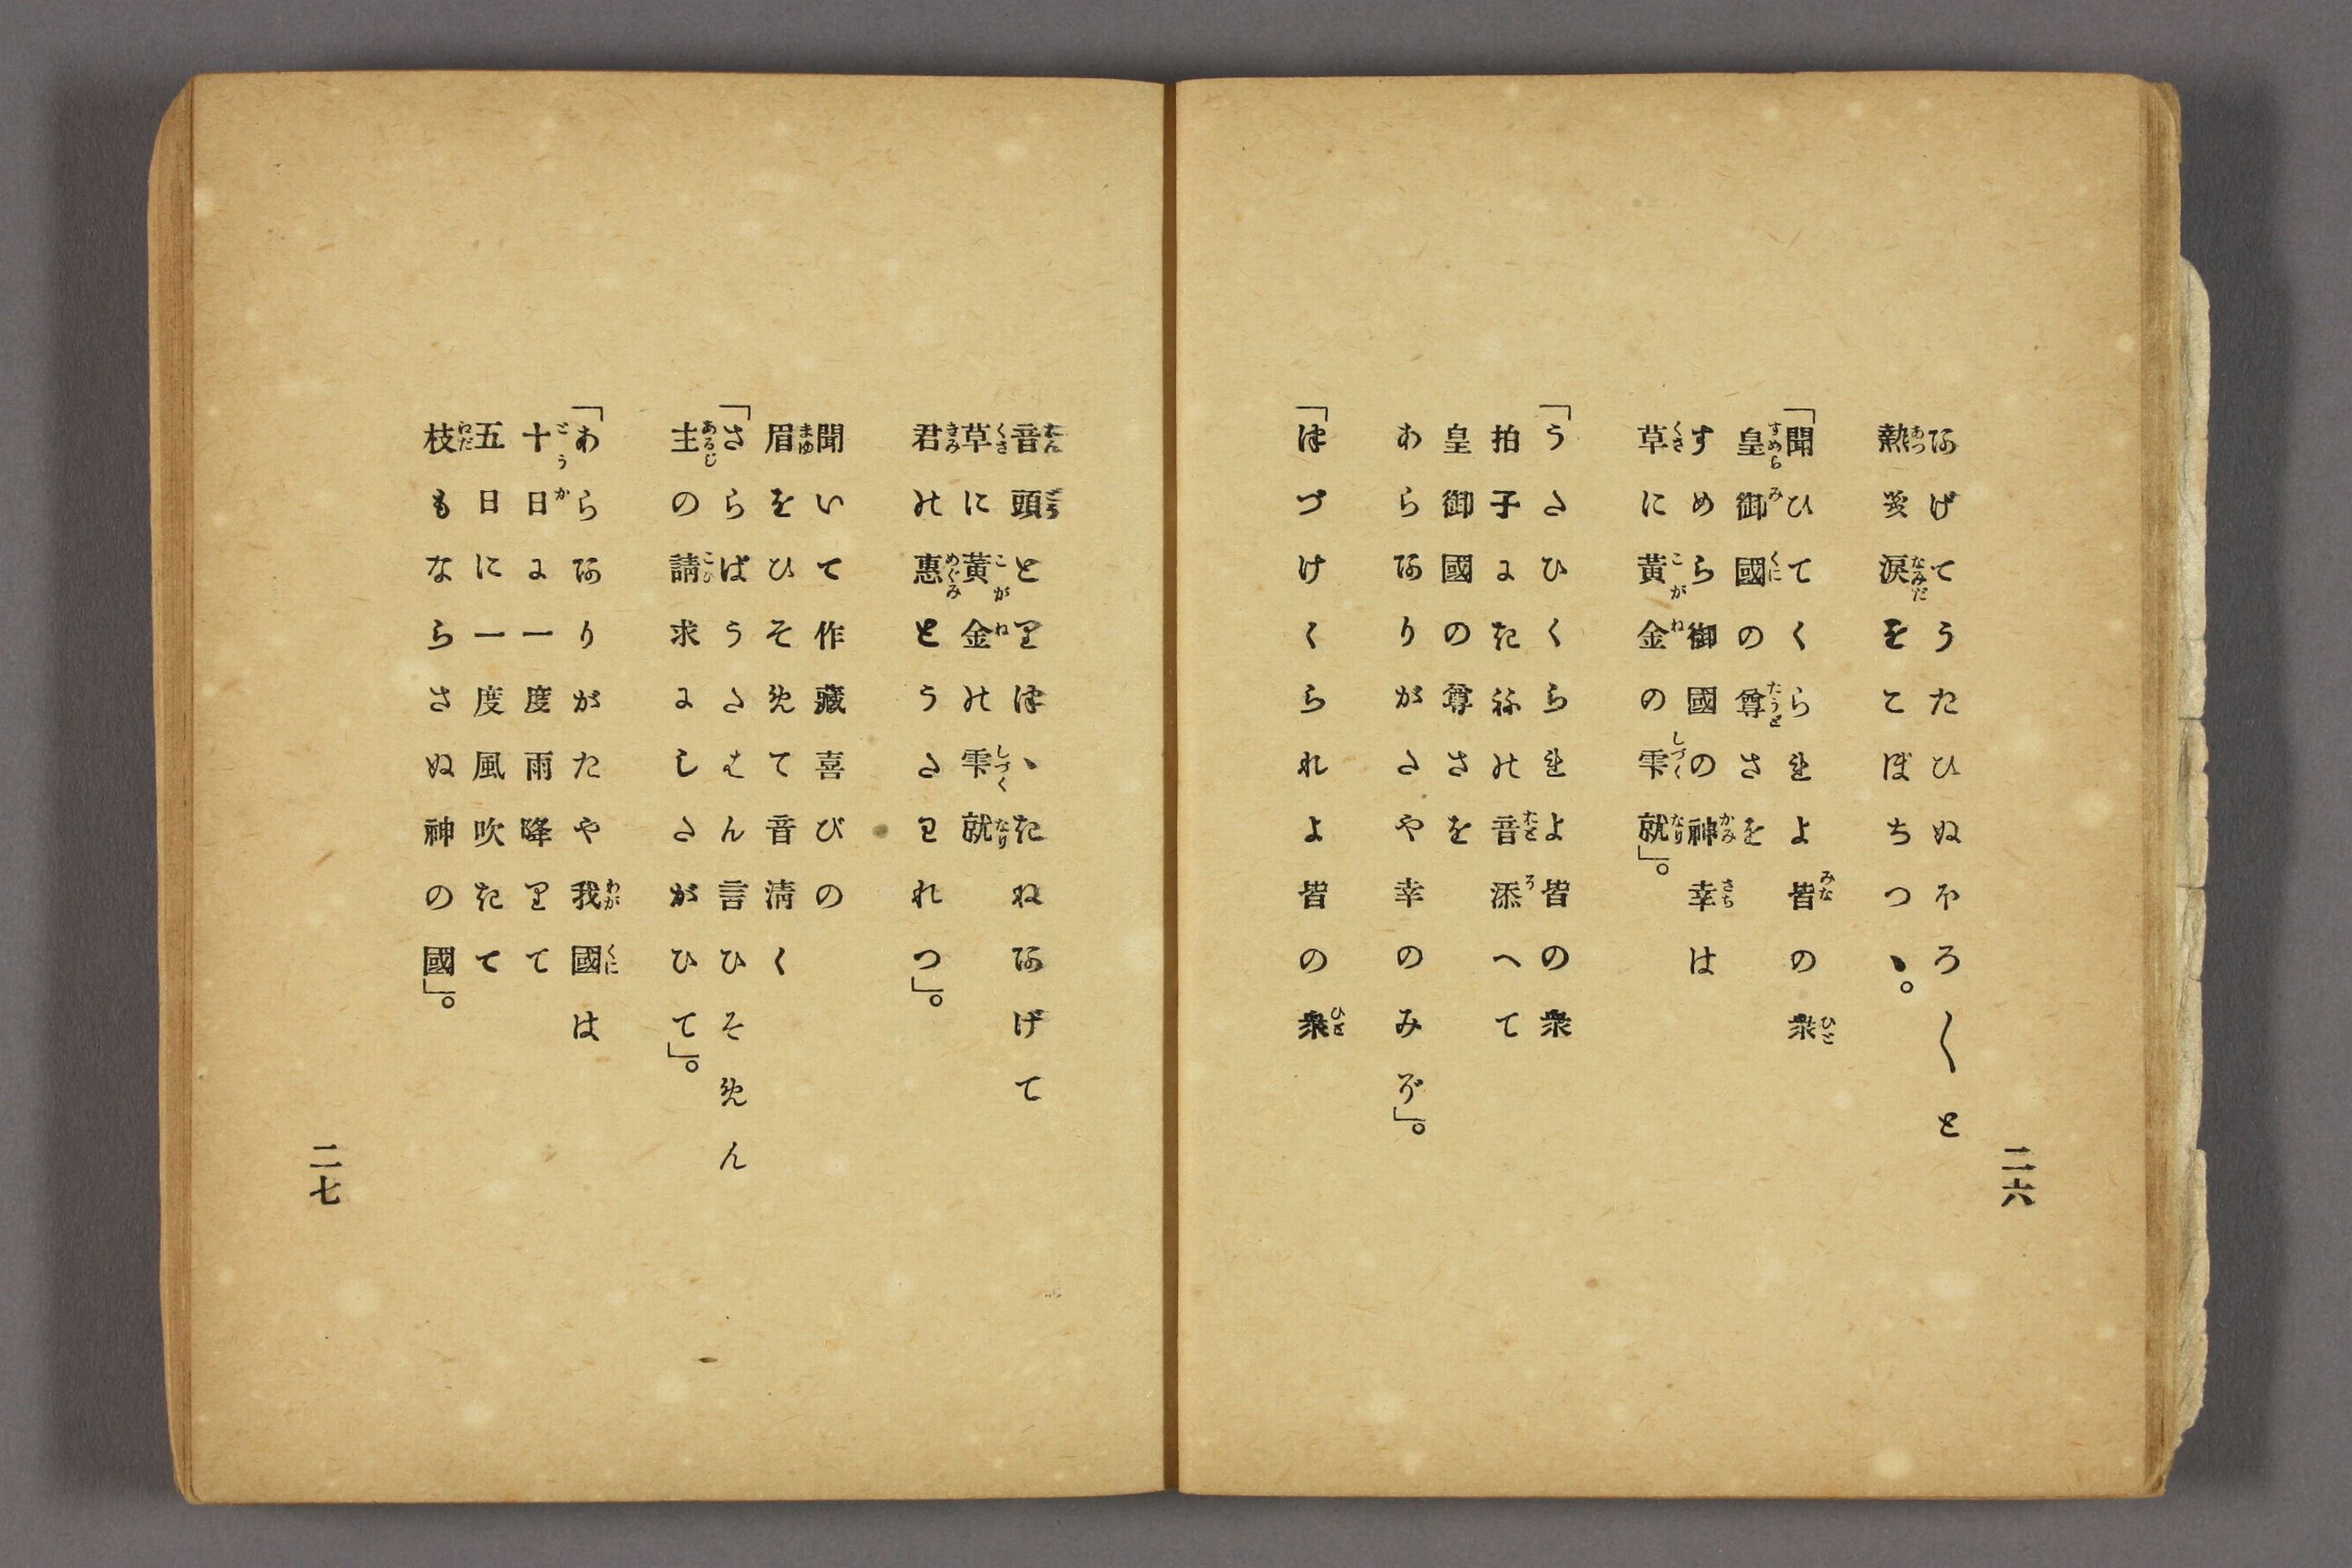 二六
あげてうたひぬほろ〳〵と
熱き涙をこぼちつゝ。
「聞ひてくられよ皆の衆
皇御國の尊さを
すめら御國の神幸は
草に黄金の雫就」。
「うたひくられよ皆の衆
拍子にきねの音添へて
皇御國の尊さを
あらありがたや幸のみぞ」。
「つづけくられよ皆の衆
音頭とりつゝきねあげて
草に黄金の雫就
君の惠とうたわれつ」。
聞いて作藏喜びの
眉をひそめて音淸く
「さらばうたはん言ひそめん
主の請求にしたがひて」。
「あらありがたや我國は
十日に一度雨降りて
五日に一度風吹きて
枝もならさぬ神の國」。
二七